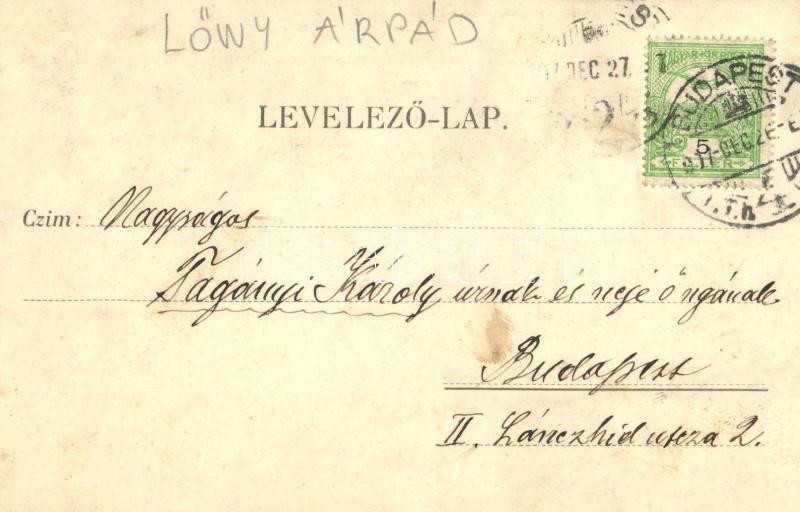 LŐWY ÁRPÁD
DEC 27
LEVELEZŐ-LAP.
MAGYAR KIR. POSTA
BUDAPEST
5
FILLÉR
Czim: Nagyságos
Tagányi Károly úrnak és neje őngának
Budapest
II. Lánczhid utcza 2.